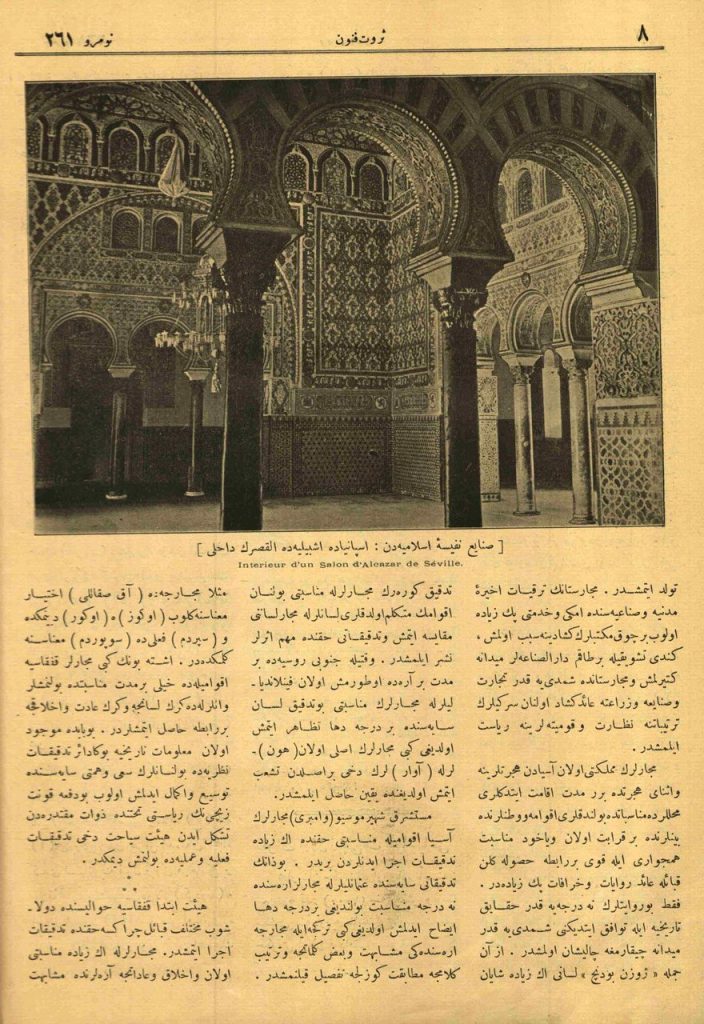 ٨
ثروت فنون
نومرو ٢٦١
[ صنایع نفیسهٔ اسلامیه‌دن : اسپانیاده اشبیلیه‌ده القصرك داخلی ]
Interieur d'un Salon d'Alcazar de Séville.
تولد ایتمشدر . مجارستانك ترقیات اخیرهٔ
مدنیه و صناعیه‌سنده امكی وخدمتی پك زیاده
اولوب برچوق مكتبلرك كشادینه سبب اولمش ،
كندی تشویقیله برطاقم دارالصناعه‌لر میدانه
كتیرلمش ومجارستانده شمدی‌یه قدر تجارت
وصنایعه وزراعته عائد كشاد اولنان سركیلرك
ترتیباتنه نظارت و قومیته‌لرینه ریاست
ایلمشدر .
مجارلرك مملكتی اولان آسیادن هجرتلرینه
واثنای هجرتده بر مدت اقامت ایتدكلری
محللرده مناسباتده بولندقلری اقوامه ووطنلرنده
بینلرنده بر قرابت اولان ویاخود مناسبت
همجواری ایله قوی بررابطه حصوله كلن
قبائله عائد روایات وخرافات پك زیاده‌در .
فقط بوروایتلرك نه درجه‌یه قدر حقایق
تاریخیه ایله توافق ایتدیكنی شمدی‌یه قدر
میدانه چیقارمغه چالیشان اولمشدر . از آن
جمله « ژوزن بودنچ » لسانی اك زیاده شایان
تدقیق كوره‌رك مجارلرله مناسبتی بولنان
اقوامك متكلم اولدقلری لسانلرله مجارلسانی
مقایسه ایتمش وتدقیقاتی حقنده مهم اثرلر
نشر ایلمشدر . وقتیله جنوبی روسیه‌ده بر
مدت بر آره‌ده اوطورمش اولان فینلاندیا-
لیلرله مجارلرك مناسبتی بوتدقیق لسان
سایه‌سنده بر درجه دها تظاهر ایتمش
اولدیغی كبی مجارلرك اصلی اولان ( هون ) -
لرله ( آوار ) لرك دخی براصلدن تشعب
ایتمش اولدیغنده یقین حاصل ایلمشدر .
مستشرق شهیر موسیو ( وامبری ) مجارلرك
آسیا اقوامیله مناسبتی حقنده اك زیاده
تدقیقات اجرا ایدنلردن بریدر . بوذاتك
تدقیقاتی سایه‌سنده عثمانلیلرله مجارلر اره‌سنده
نه درجه مناسبت بولندیغی بردرجه دها
ایضاح ایدلمش اولدیغی كبی تركجه ایله مجارجه
اره‌سنده‌كی مشابهت وبعض كلماتجه وترتیب
كلامجه مطابقت كوزلجه تفصیل قیلنمشدر .
مثلا مجارجه‌ده ( آق صقاللی ) اختیار
معناسنه كلوب ( اوكوز ) ه ( اوكور ) دیمكده
و ( سیردم ) فعلی‌ده ( سویوردم ) معناسنه
كلمكده‌در . اشته بونك كبی مجارلر قفقاسیه
اقوامیله‌ده خیلی برمدت مناسبتده بولنمشلر
وانلرله‌ده كرك لسانجه وكرك عادت واخلاقجه
بررابطه حاصل ایتمشلردر . بوبابده موجود
اولان معلومات تاریخیه بوكا دائر تدقیقات
نظریه‌ده بولنانلرك سعی وهمتی سایه‌سنده
توسیع واكمال ایدلمش اولوب بودفعه قونت
زیچی‌نك ریاستی تحتنده ذوات مقتدره‌دن
تشكل ایدن هیئت سیاحت دخی تدقیقات
فعلیه وعملیه‌ده بولنمش دیمكدر .
هیئت ابتدا قفقاسیه حوالیسنده دولا-
شوب مختلف قبائل چراكسه حقنده تدقیقات
اجرا ایتمشدر . مجارلرله اك زیاده مناسبتی
اولان واخلاق وعاداتجه آره‌لرنده مشابهت